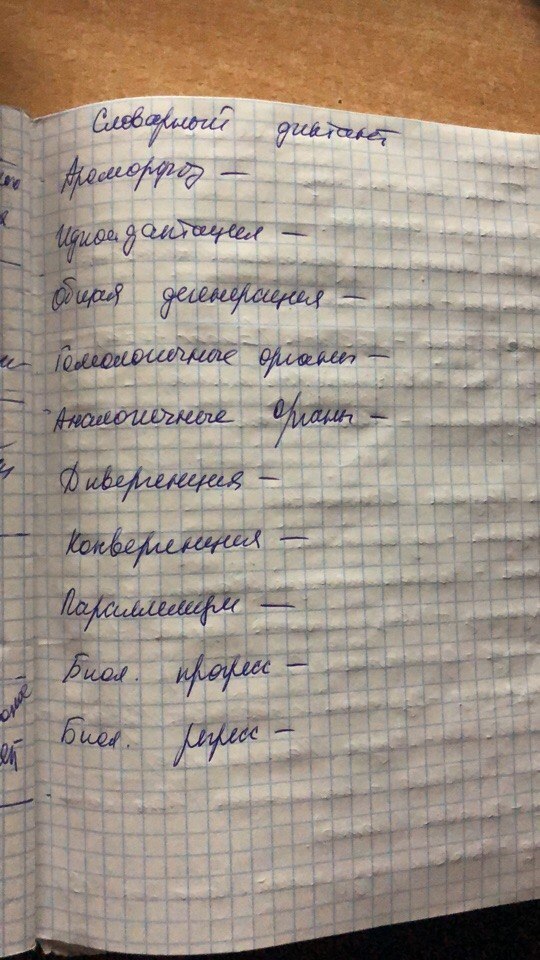 Словарный диктант
Ароморфоз —
Идиоадаптация —
Общая дегенерация —
Гомологичные органы —
Аналогичные органы —
Дивергенция —
Конвергенция —
Параллелизм —
Биол. прогресс —
Биол. регресс —